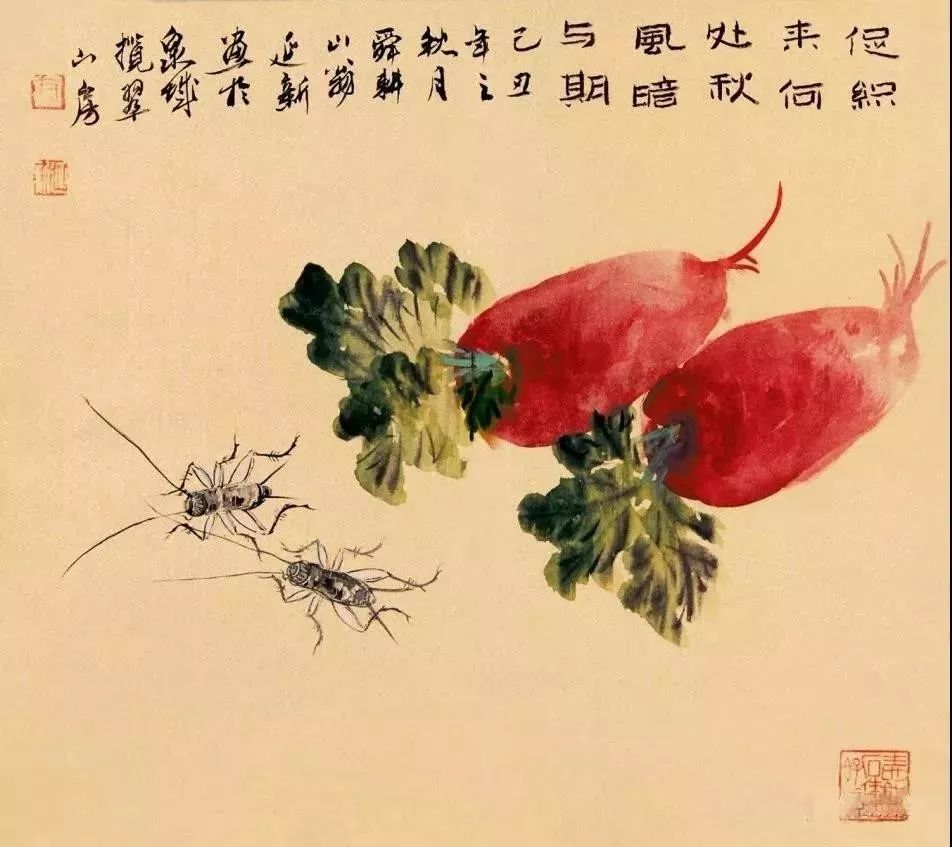 促織
来何
处秋
風暗
与期
己丑
年之
秋月
舜耕
山翁
延新
画於
泉城
揽翠
山房